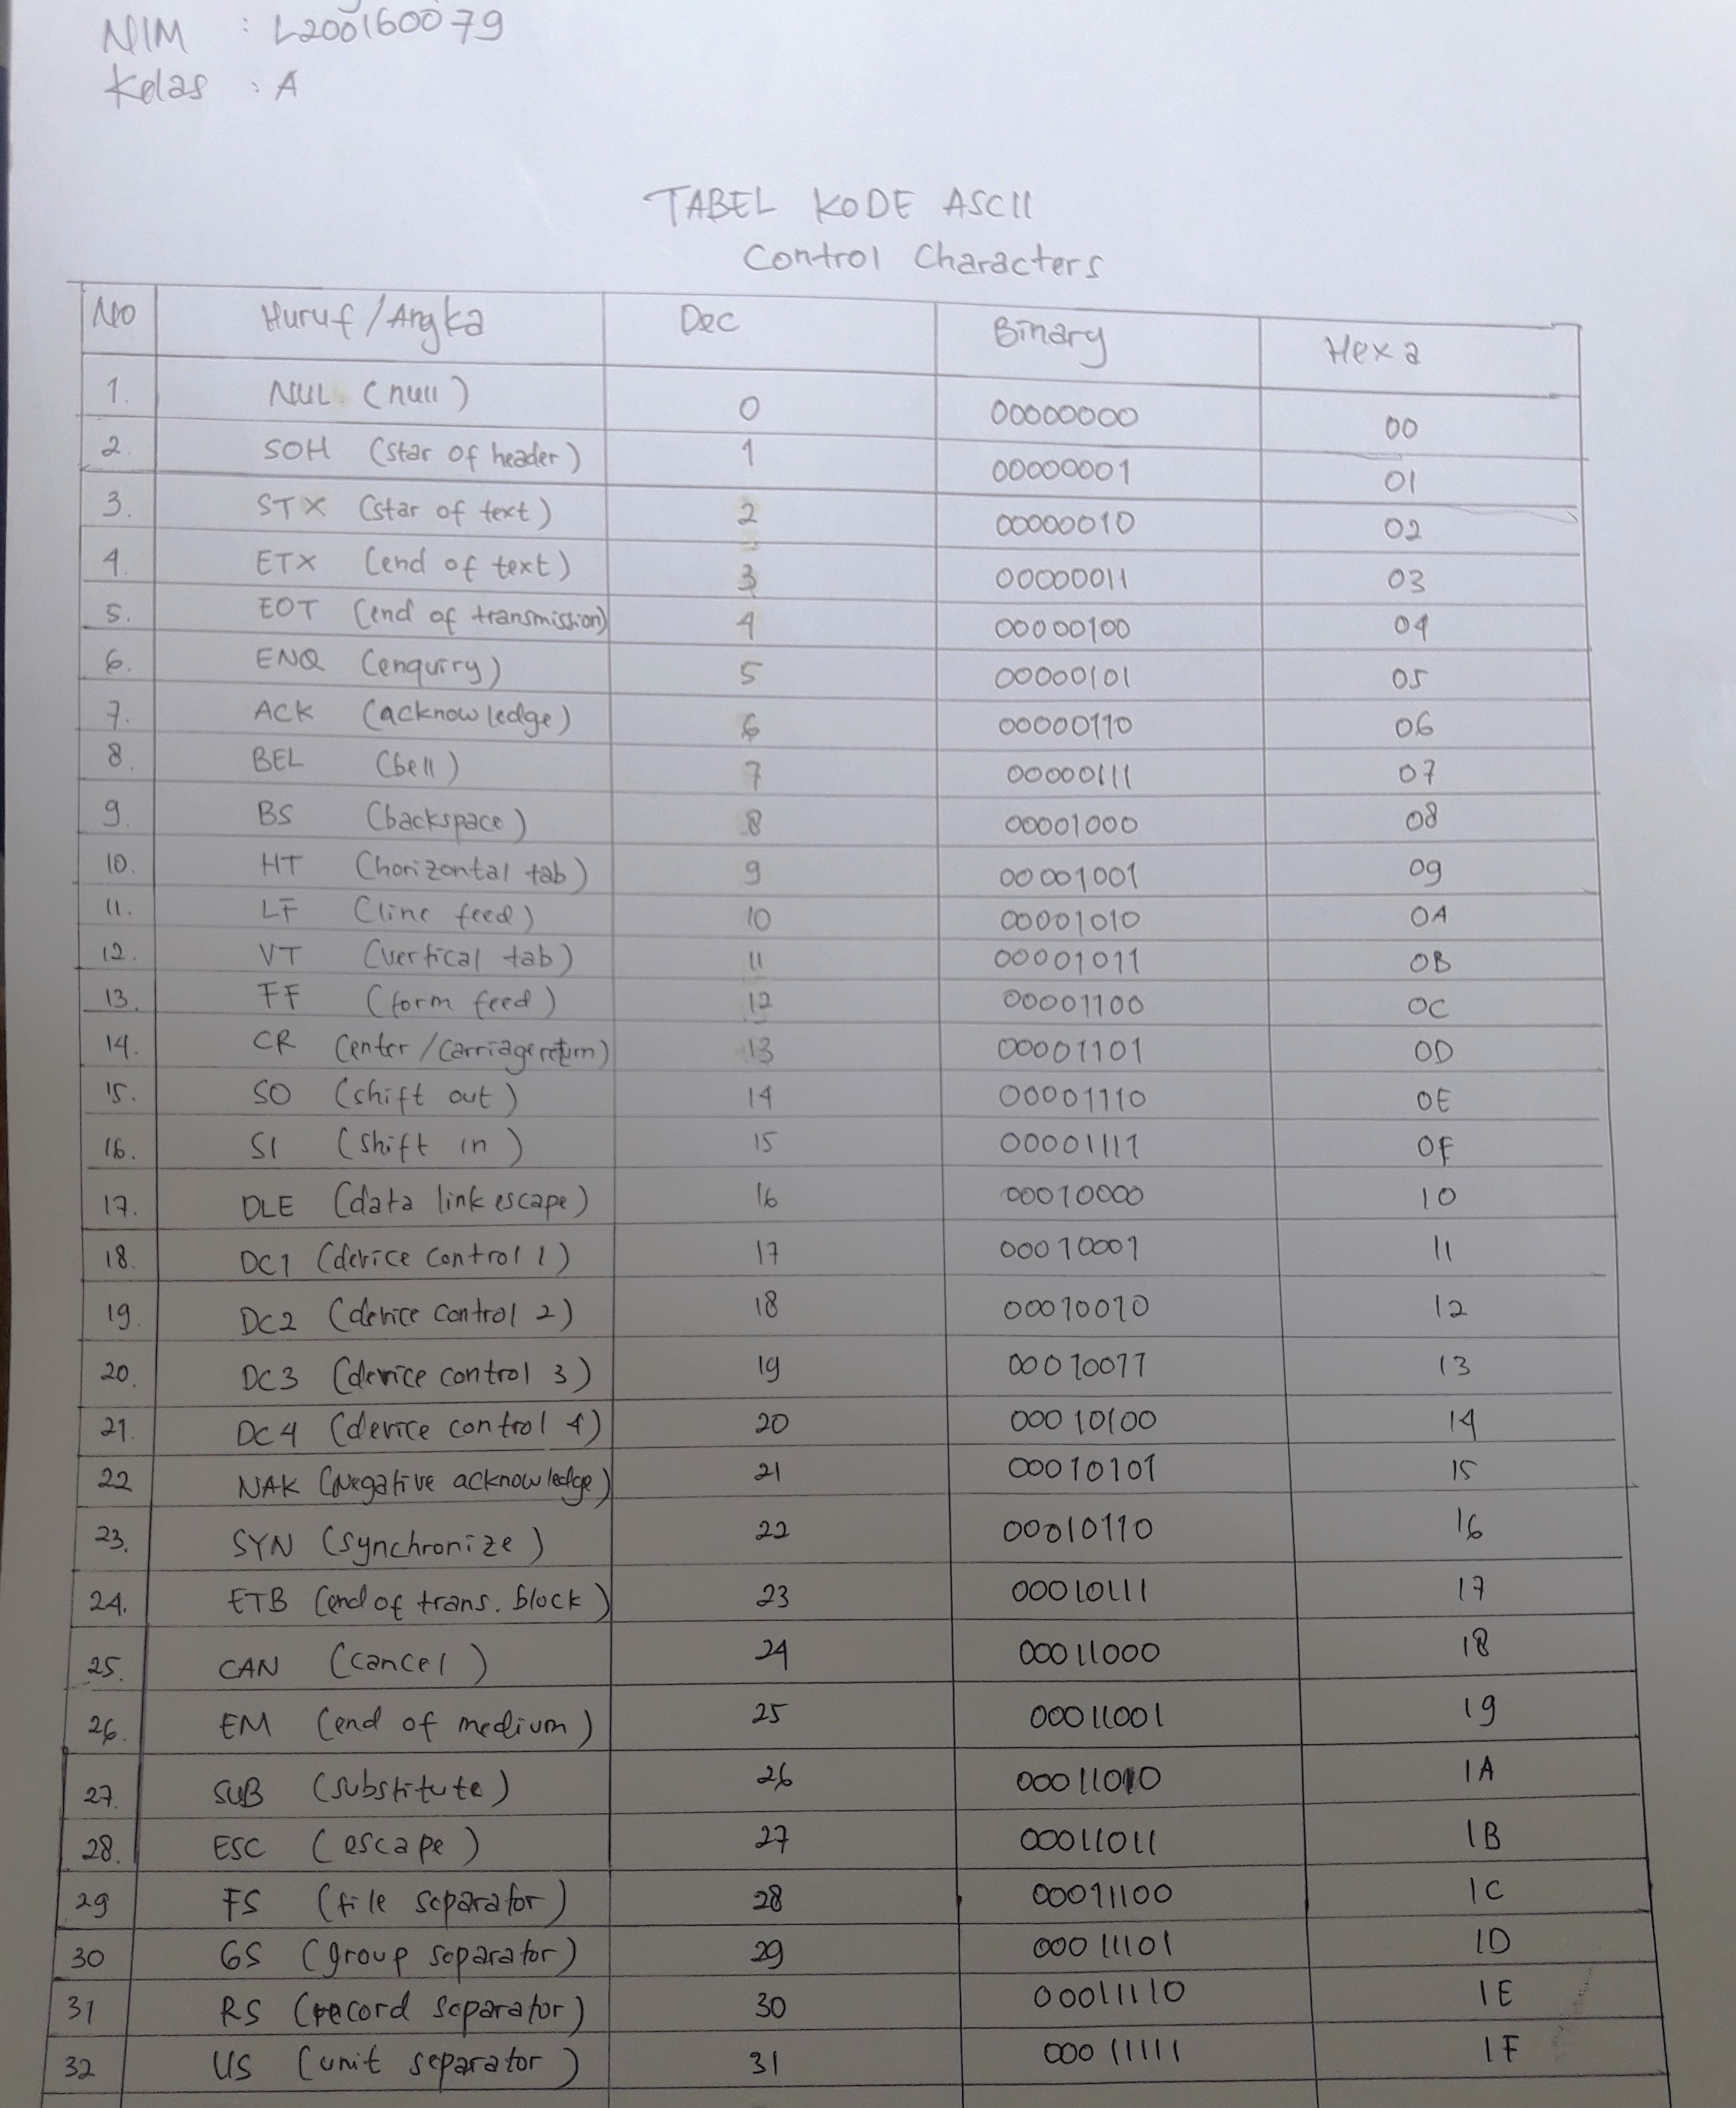 NIM : L200160079
Kelas : A
TABEL KODE ASCII
Control Characters
No Huruf/Angka Dec Binary Hexa
1. NUL (null) 0 00000000 00
2. SOH (star of header) 1 00000001 01
3. STX (star of text) 2 00000010 02
4. ETX (end of text) 3 00000011 03
5. EOT (end of transmission) 4 00000100 04
6. ENQ (enquiry) 5 00000101 05
7. ACK (acknowledge) 6 00000110 06
8. BEL (bell) 7 00000111 07
9. BS (backspace) 8 00001000 08
10. HT (horizontal tab) 9 00001001 09
11. LF (line feed) 10 00001010 0A
12. VT (vertical tab) 11 00001011 0B
13. FF (form feed) 12 00001100 0C
14. CR (enter/carriage return) 13 00001101 0D
15. SO (shift out) 14 00001110 0E
16. SI (shift in) 15 00001111 0F
17. DLE (data link escape) 16 00010000 10
18. DC1 (device control 1) 17 00010001 11
19. DC2 (device control 2) 18 00010010 12
20. DC3 (device control 3) 19 00010011 13
21. DC4 (device control 4) 20 00010100 14
22 NAK (Negative acknowledge) 21 00010101 15
23. SYN (synchronize) 22 00010110 16
24. ETB (end of trans. block) 23 00010111 17
25. CAN (cancel) 24 00011000 18
26. EM (end of medium) 25 00011001 19
27. SUB (substitute) 26 00011010 1A
28. ESC (escape) 27 00011011 1B
29 FS (file separator) 28 00011100 1C
30 GS (group separator) 29 00011101 1D
31 RS (record separator) 30 00011110 1E
32 US (unit separator) 31 00011111 1F